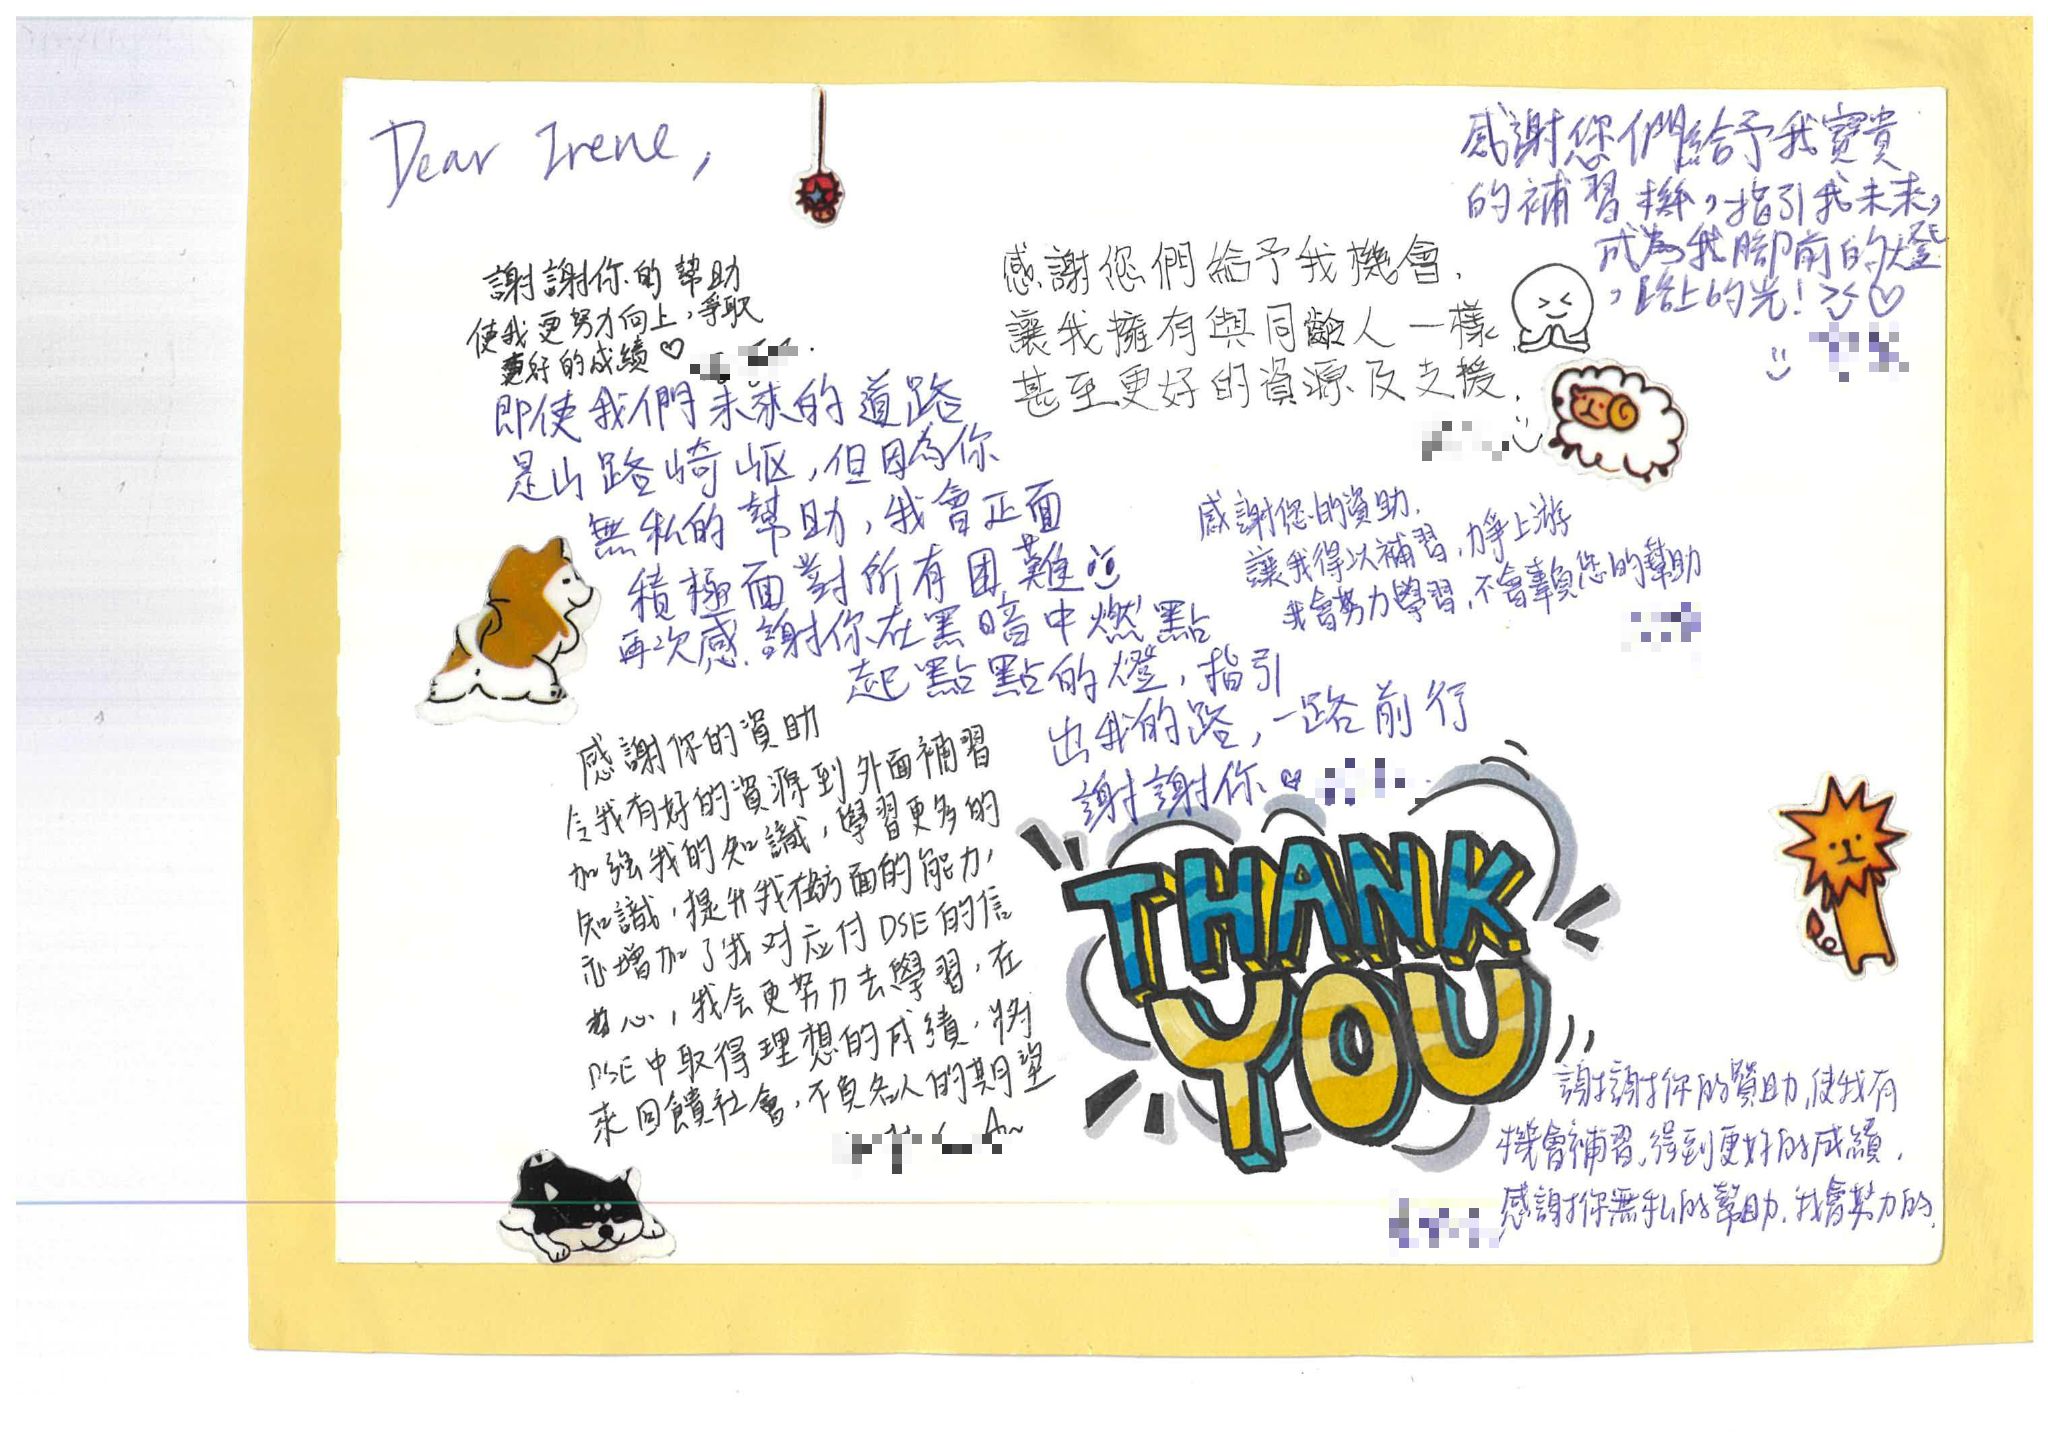 Dear Irene,
謝謝你的幫助
使我更努力向上，爭取
更好的成績♡
即使我們未來的道路
是山路崎岖，但因為你
無私的幫助，我會正面
積極面對所有困難
再次感謝你在黑暗中燃點
起點點的燈，指引
出我的路，一路前行
謝謝你
感謝您們給予我機會，
讓我擁有與同齡人一樣
甚至更好的資源及支援，
感謝您們給予我寶貴
的補習機，指引我未來，
成為我腳前的燈
，路上的光！♡
感謝您的資助，
讓我得以補習，力爭上游
我會努力學習，不會辜負您的幫助
感謝你的資助
令我有好的資源到外面補習
加強我的知識，學習更多的
知識，提升我在各方面的能力，
亦增加了我对应付DSE的信
心，我会更努力去學習，在
DSE中取得理想的成績，將
來回饋社會，不負各人的期望
THANK
YOU
謝謝你的資助，使我有
機會補習，得到更好的成績，
感謝你無私的幫助，我會努力的